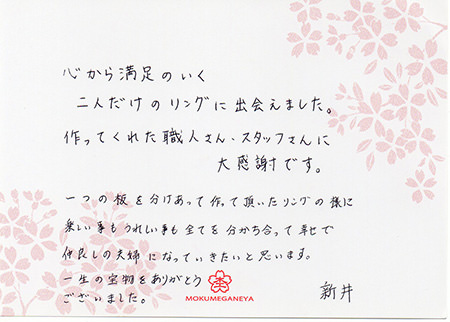 心から満足のいく
二人だけのリングに出会えました。
作ってくれた職人さん、スタッフさんに
大感謝です。
一つの板を分けあって作って頂いたリングの様に
楽しい事もうれしい事も全てを分かち合って幸せで
仲良しの夫婦になっていきたいと思います。
一生の宝物をありがとう
ございました。
新井
MOKUMEGANEYA